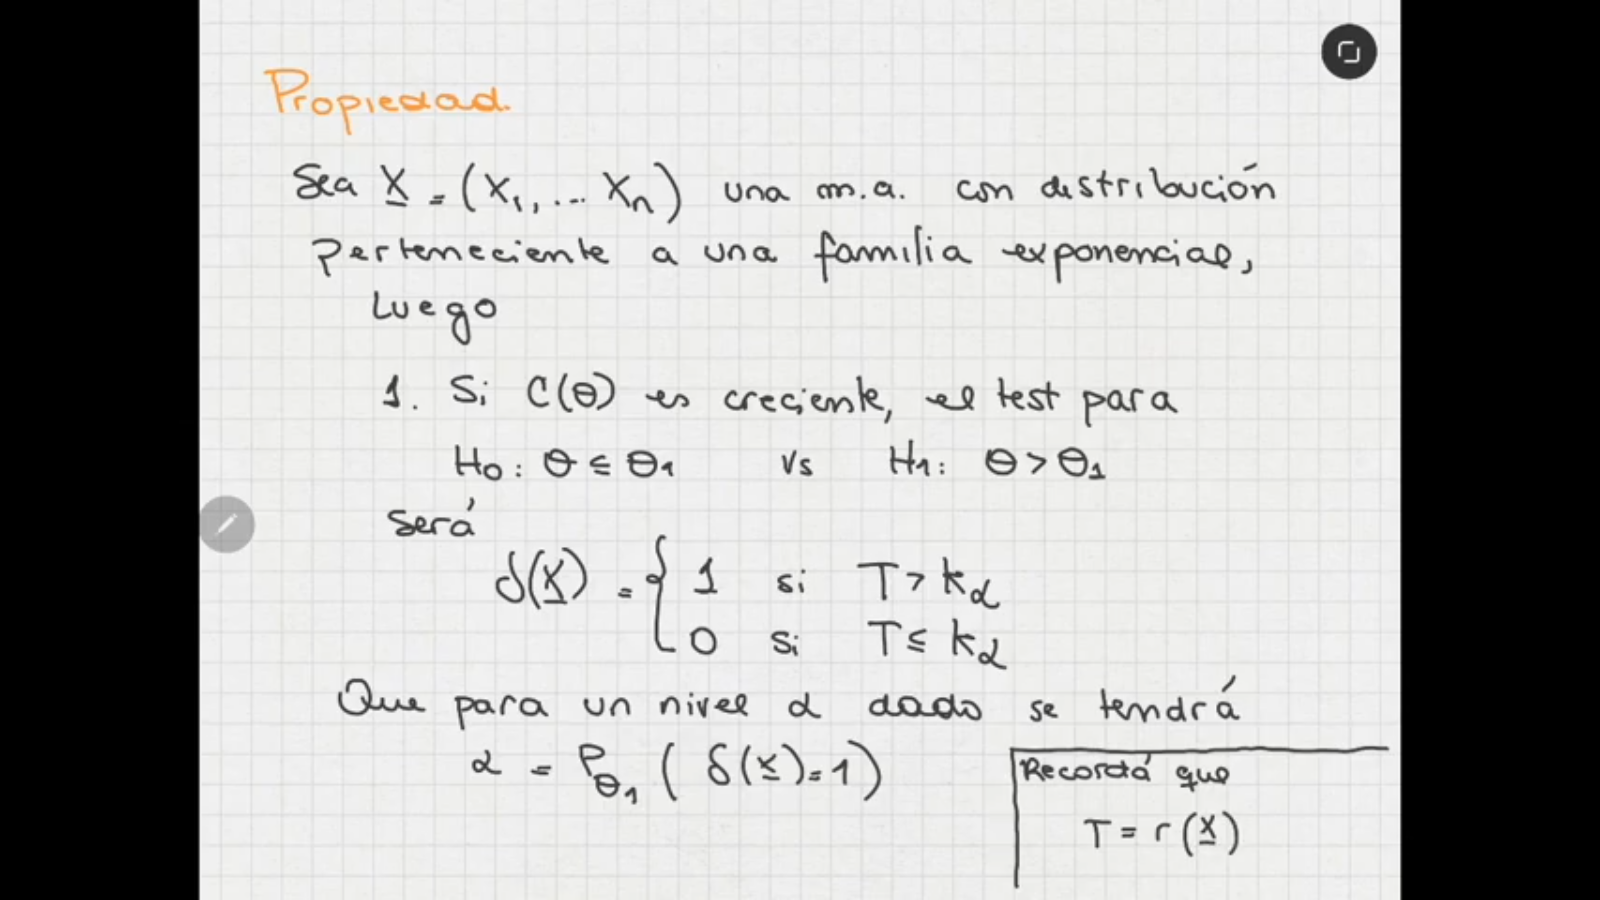 Propiedad.
Sea X = (X1, ... Xn) una m.a. con distribución
perteneciente a una familia exponencial,
Luego
1. Si C(θ) es creciente, el test para
H0: θ ≤ θ1 vs H1: θ > θ1
Será
δ(X) = { 1 si T > kα
0 si T ≤ kα
Que para un nivel α dado se tendrá
α = Pθ1 ( δ(X) = 1 )
Recordá que
T = r(X)